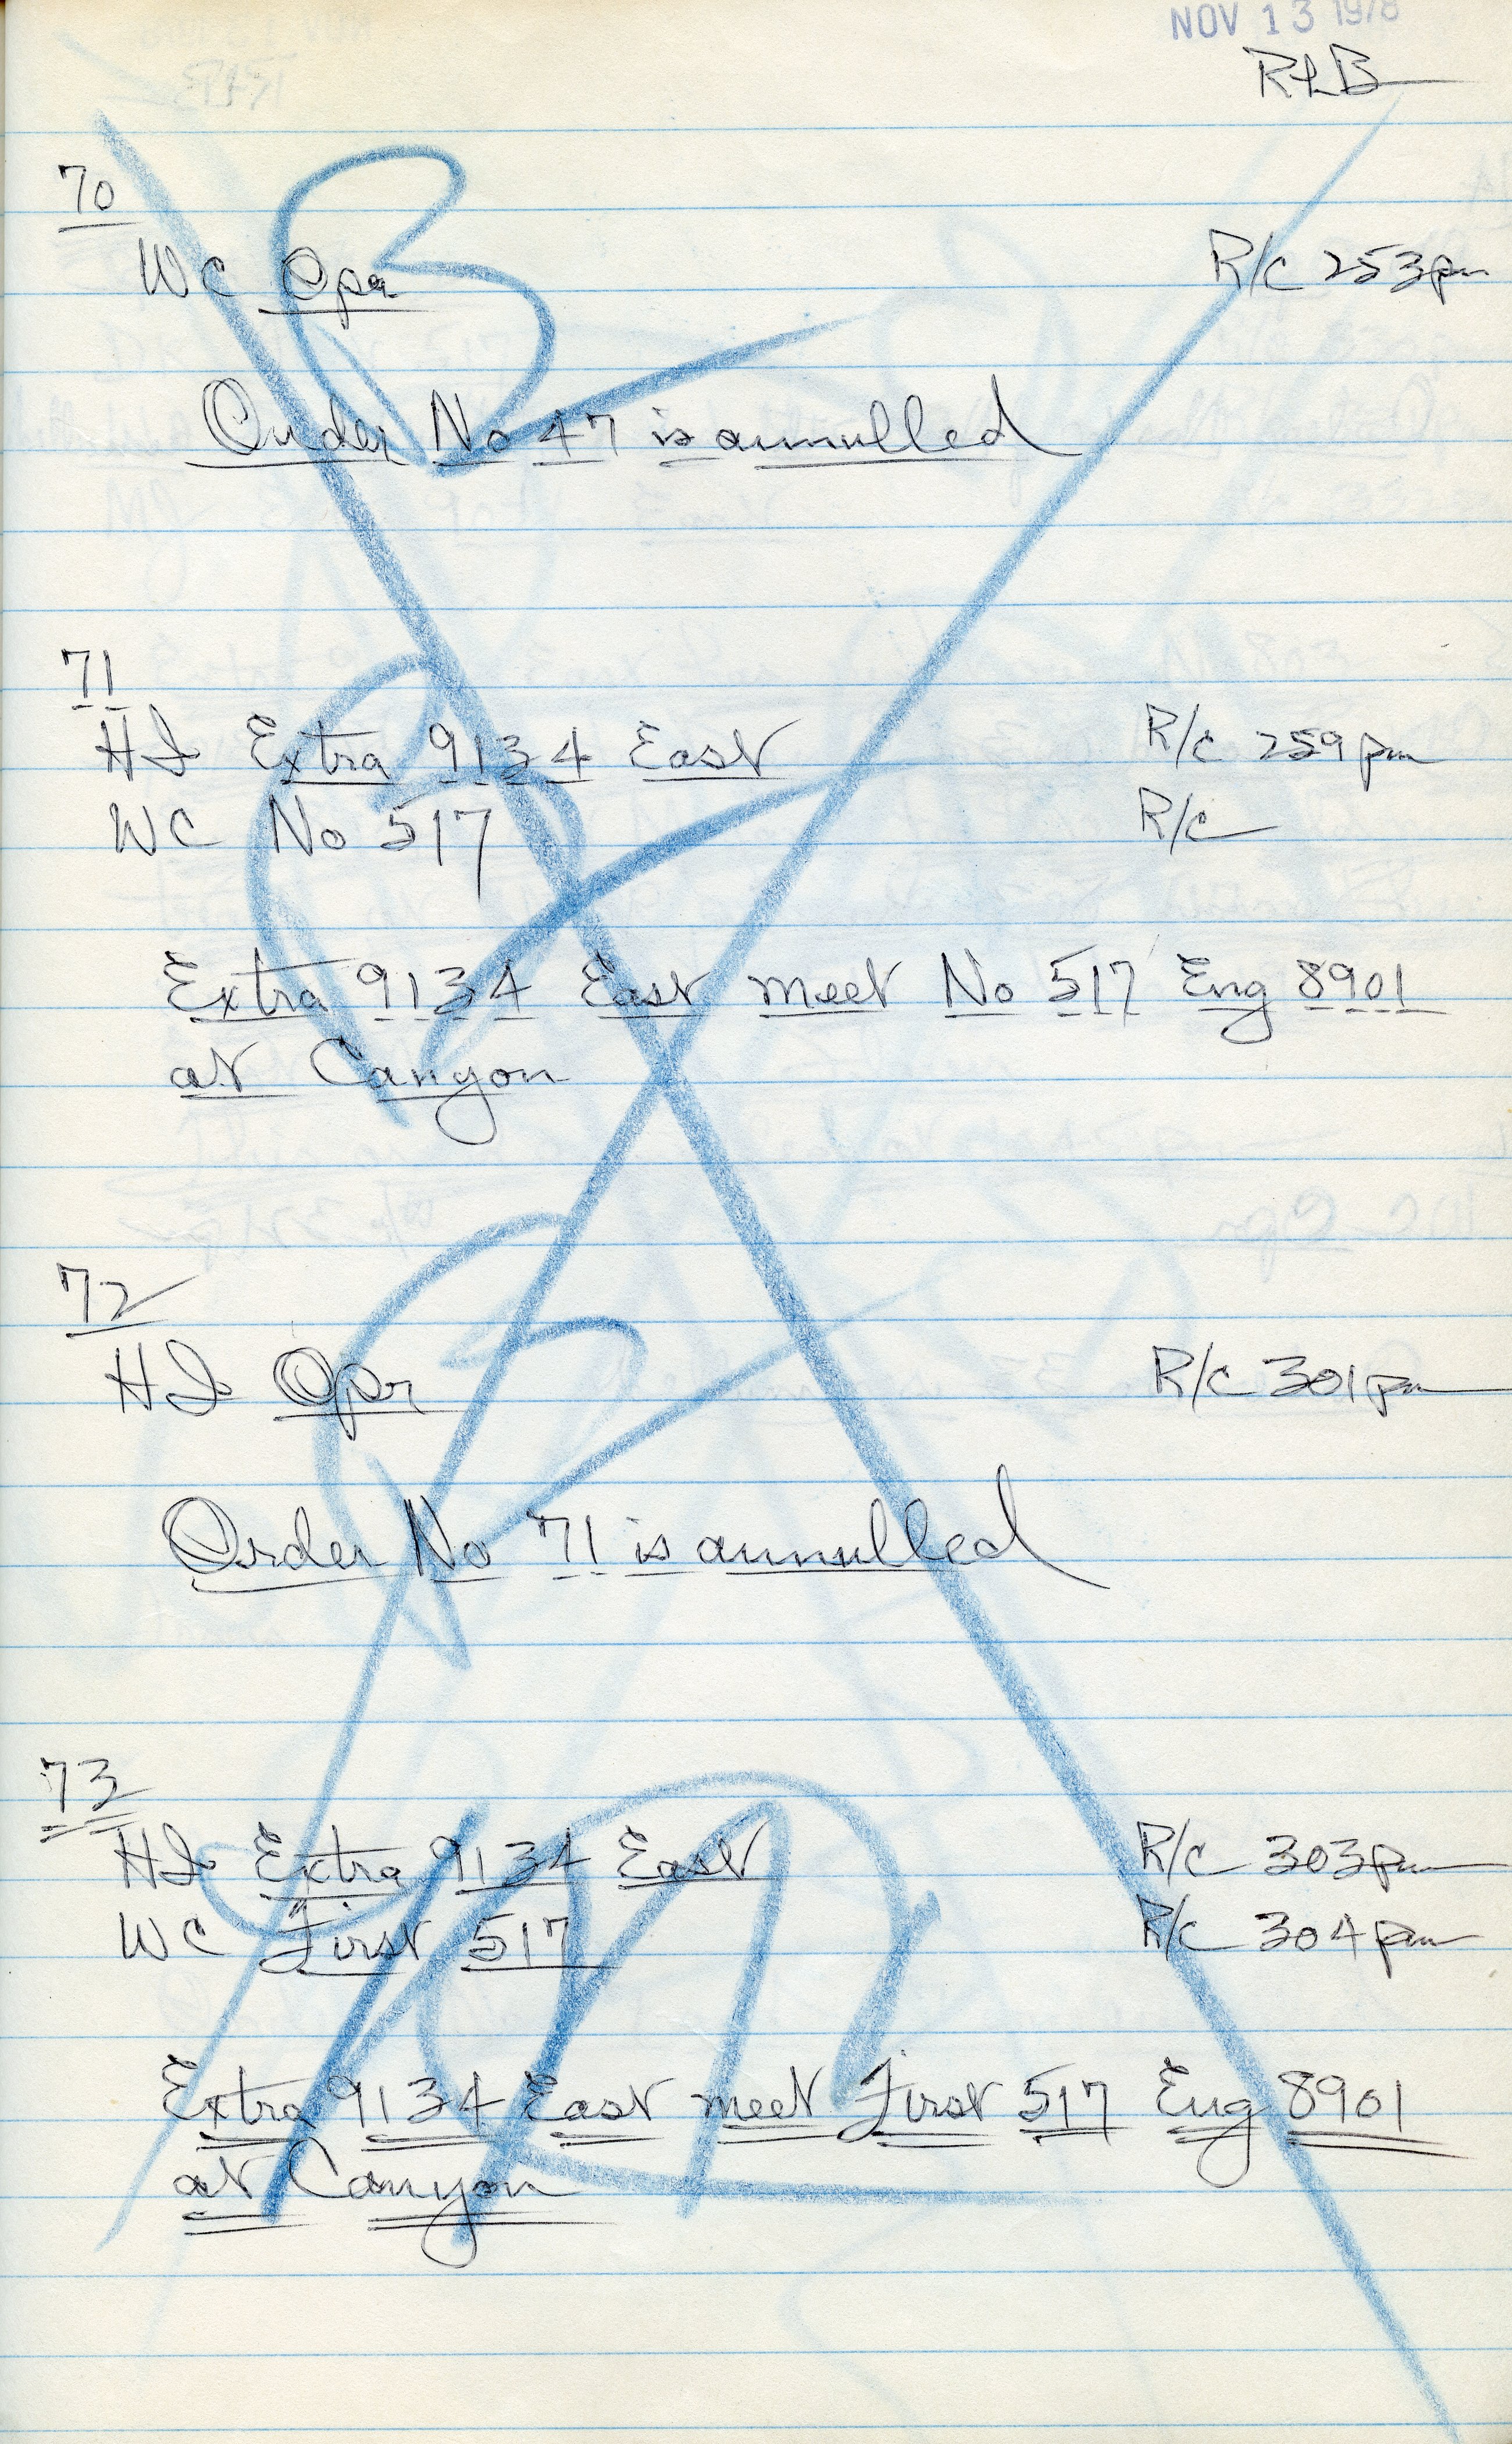 NOV 13 1978
RLB
70
WC Opr R/c 253pm
Order No 47 is annulled
71
HI Extra 9134 East R/c 259pm
WC No 517 R/c
Extra 9134 East meet No 517 Eng 8901
at Canyon
72
HI Opr R/c 301pm
Order No 71 is annulled
73
HI Extra 9134 East R/c 303pm
WC First 517 R/c 304pm
Extra 9134 East meet First 517 Eng 8901
at Canyon